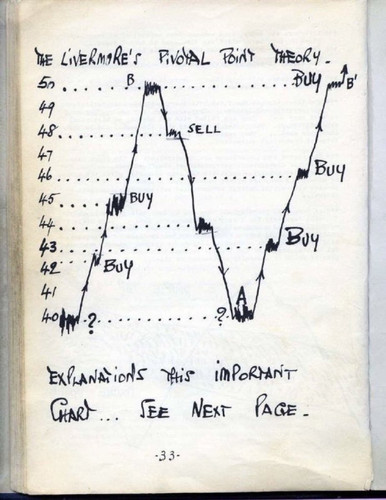 THE LIVERMORE'S PIVOTAL POINT THEORY.
50 B BUY B'
49
48 SELL
47
46 BUY
45 BUY
44
43 BUY
42 BUY
41
40 ? ? A
EXPLANATIONS THIS IMPORTANT
CHART... SEE NEXT PAGE.
-33-